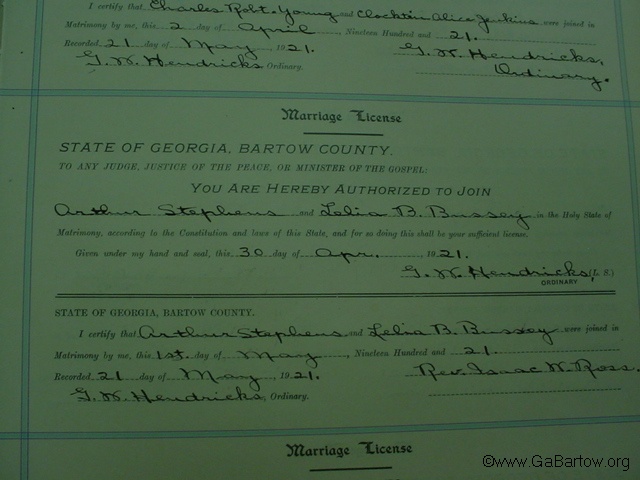 I certify that Charles Robt. Young and Clocktin Alice Jenkins were joined in
Matrimony by me, this 2 day of April, Nineteen Hundred and 21.
Recorded 21 day of May 1921. G. W. Hendricks,
G. W. Hendricks Ordinary. Ordinary.
Marriage License
STATE OF GEORGIA, BARTOW COUNTY.
TO ANY JUDGE, JUSTICE OF THE PEACE, OR MINISTER OF THE GOSPEL:
YOU ARE HEREBY AUTHORIZED TO JOIN
Arthur Stephens and Lelia B. Bussey in the Holy State of
Matrimony, according to the Constitution and laws of this State, and for so doing this shall be your sufficient license.
Given under my hand and seal, this 30 day of Apr. 1921.
G. W. Hendricks, (L. S.)
ORDINARY
STATE OF GEORGIA, BARTOW COUNTY.
I certify that Arthur Stephens and Lelia B. Bussey were joined in
Matrimony by me, this 1st. day of May, Nineteen Hundred and 21.
Recorded 21 day of May, 1921. Rev. Isaac W. Ross.
G. W. Hendricks, Ordinary.
Marriage License
©www.GaBartow.org